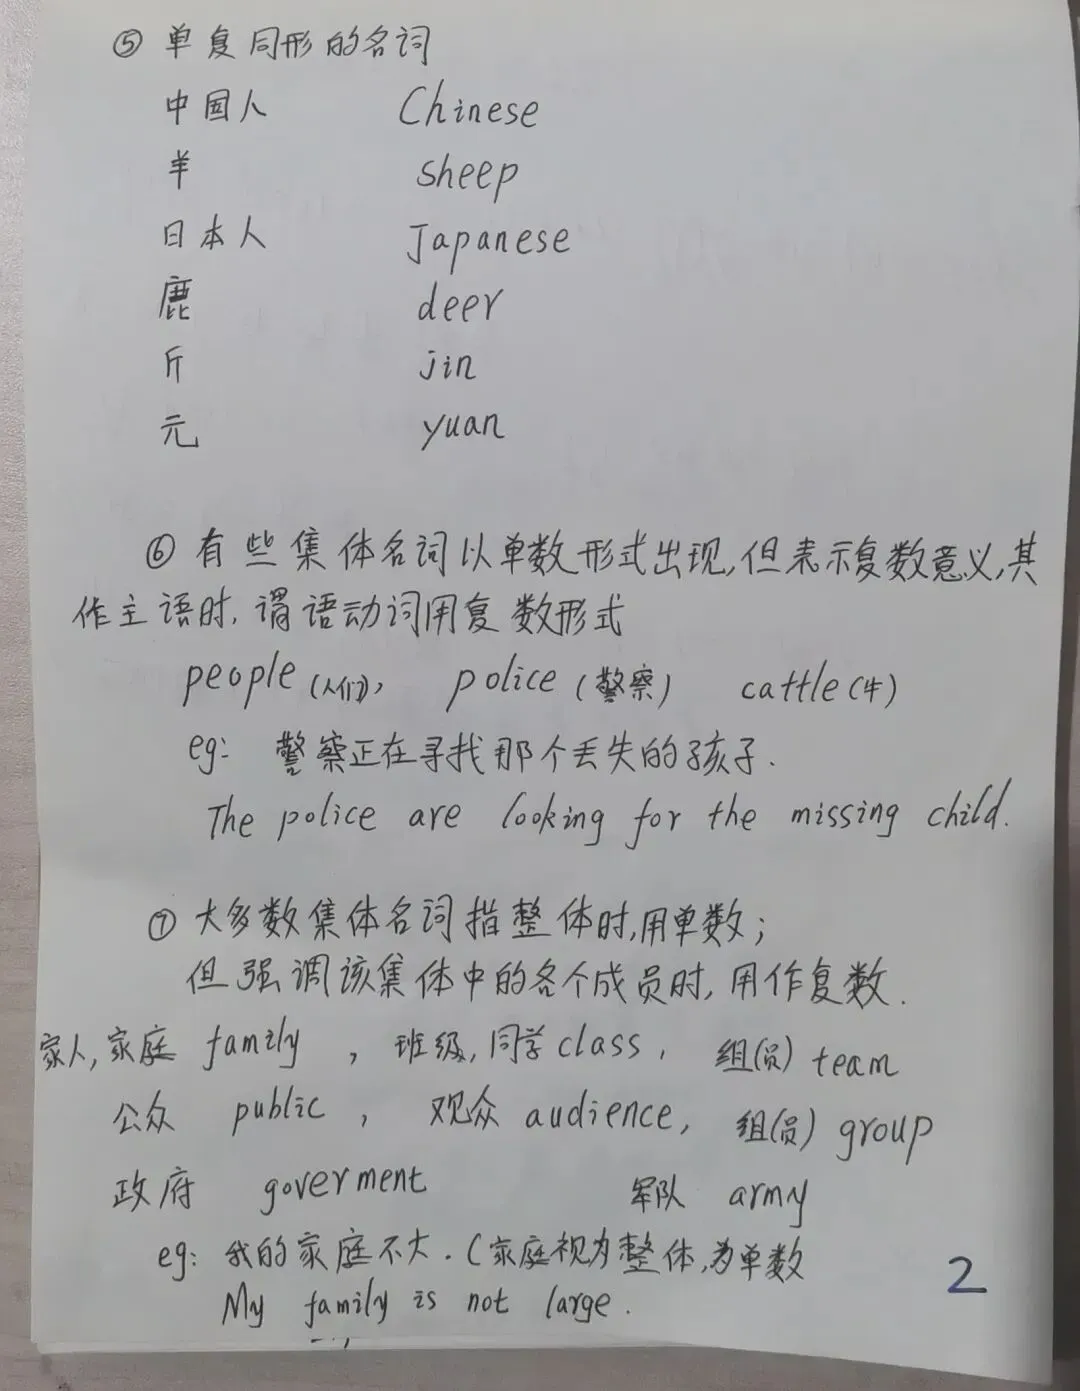 ⑤ 单复同形的名词
中国人 Chinese
羊 sheep
日本人 Japanese
鹿 deer
斤 jin
元 yuan
⑥ 有些集体名词以单数形式出现,但表示复数意义,其
作主语时,谓语动词用复数形式
people (人们), police (警察) cattle (牛)
eg: 警察正在寻找那个丢失的孩子.
The police are looking for the missing child.
⑦ 大多数集体名词指整体时,用单数;
但强调该集体中的各个成员时,用作复数.
家人,家庭 family , 班级,同学 class , 组(员) team
公众 public , 观众 audience, 组(员) group
政府 goverment 军队 army
eg: 我的家庭不大.(家庭视为整体,为单数
My family is not large.
2